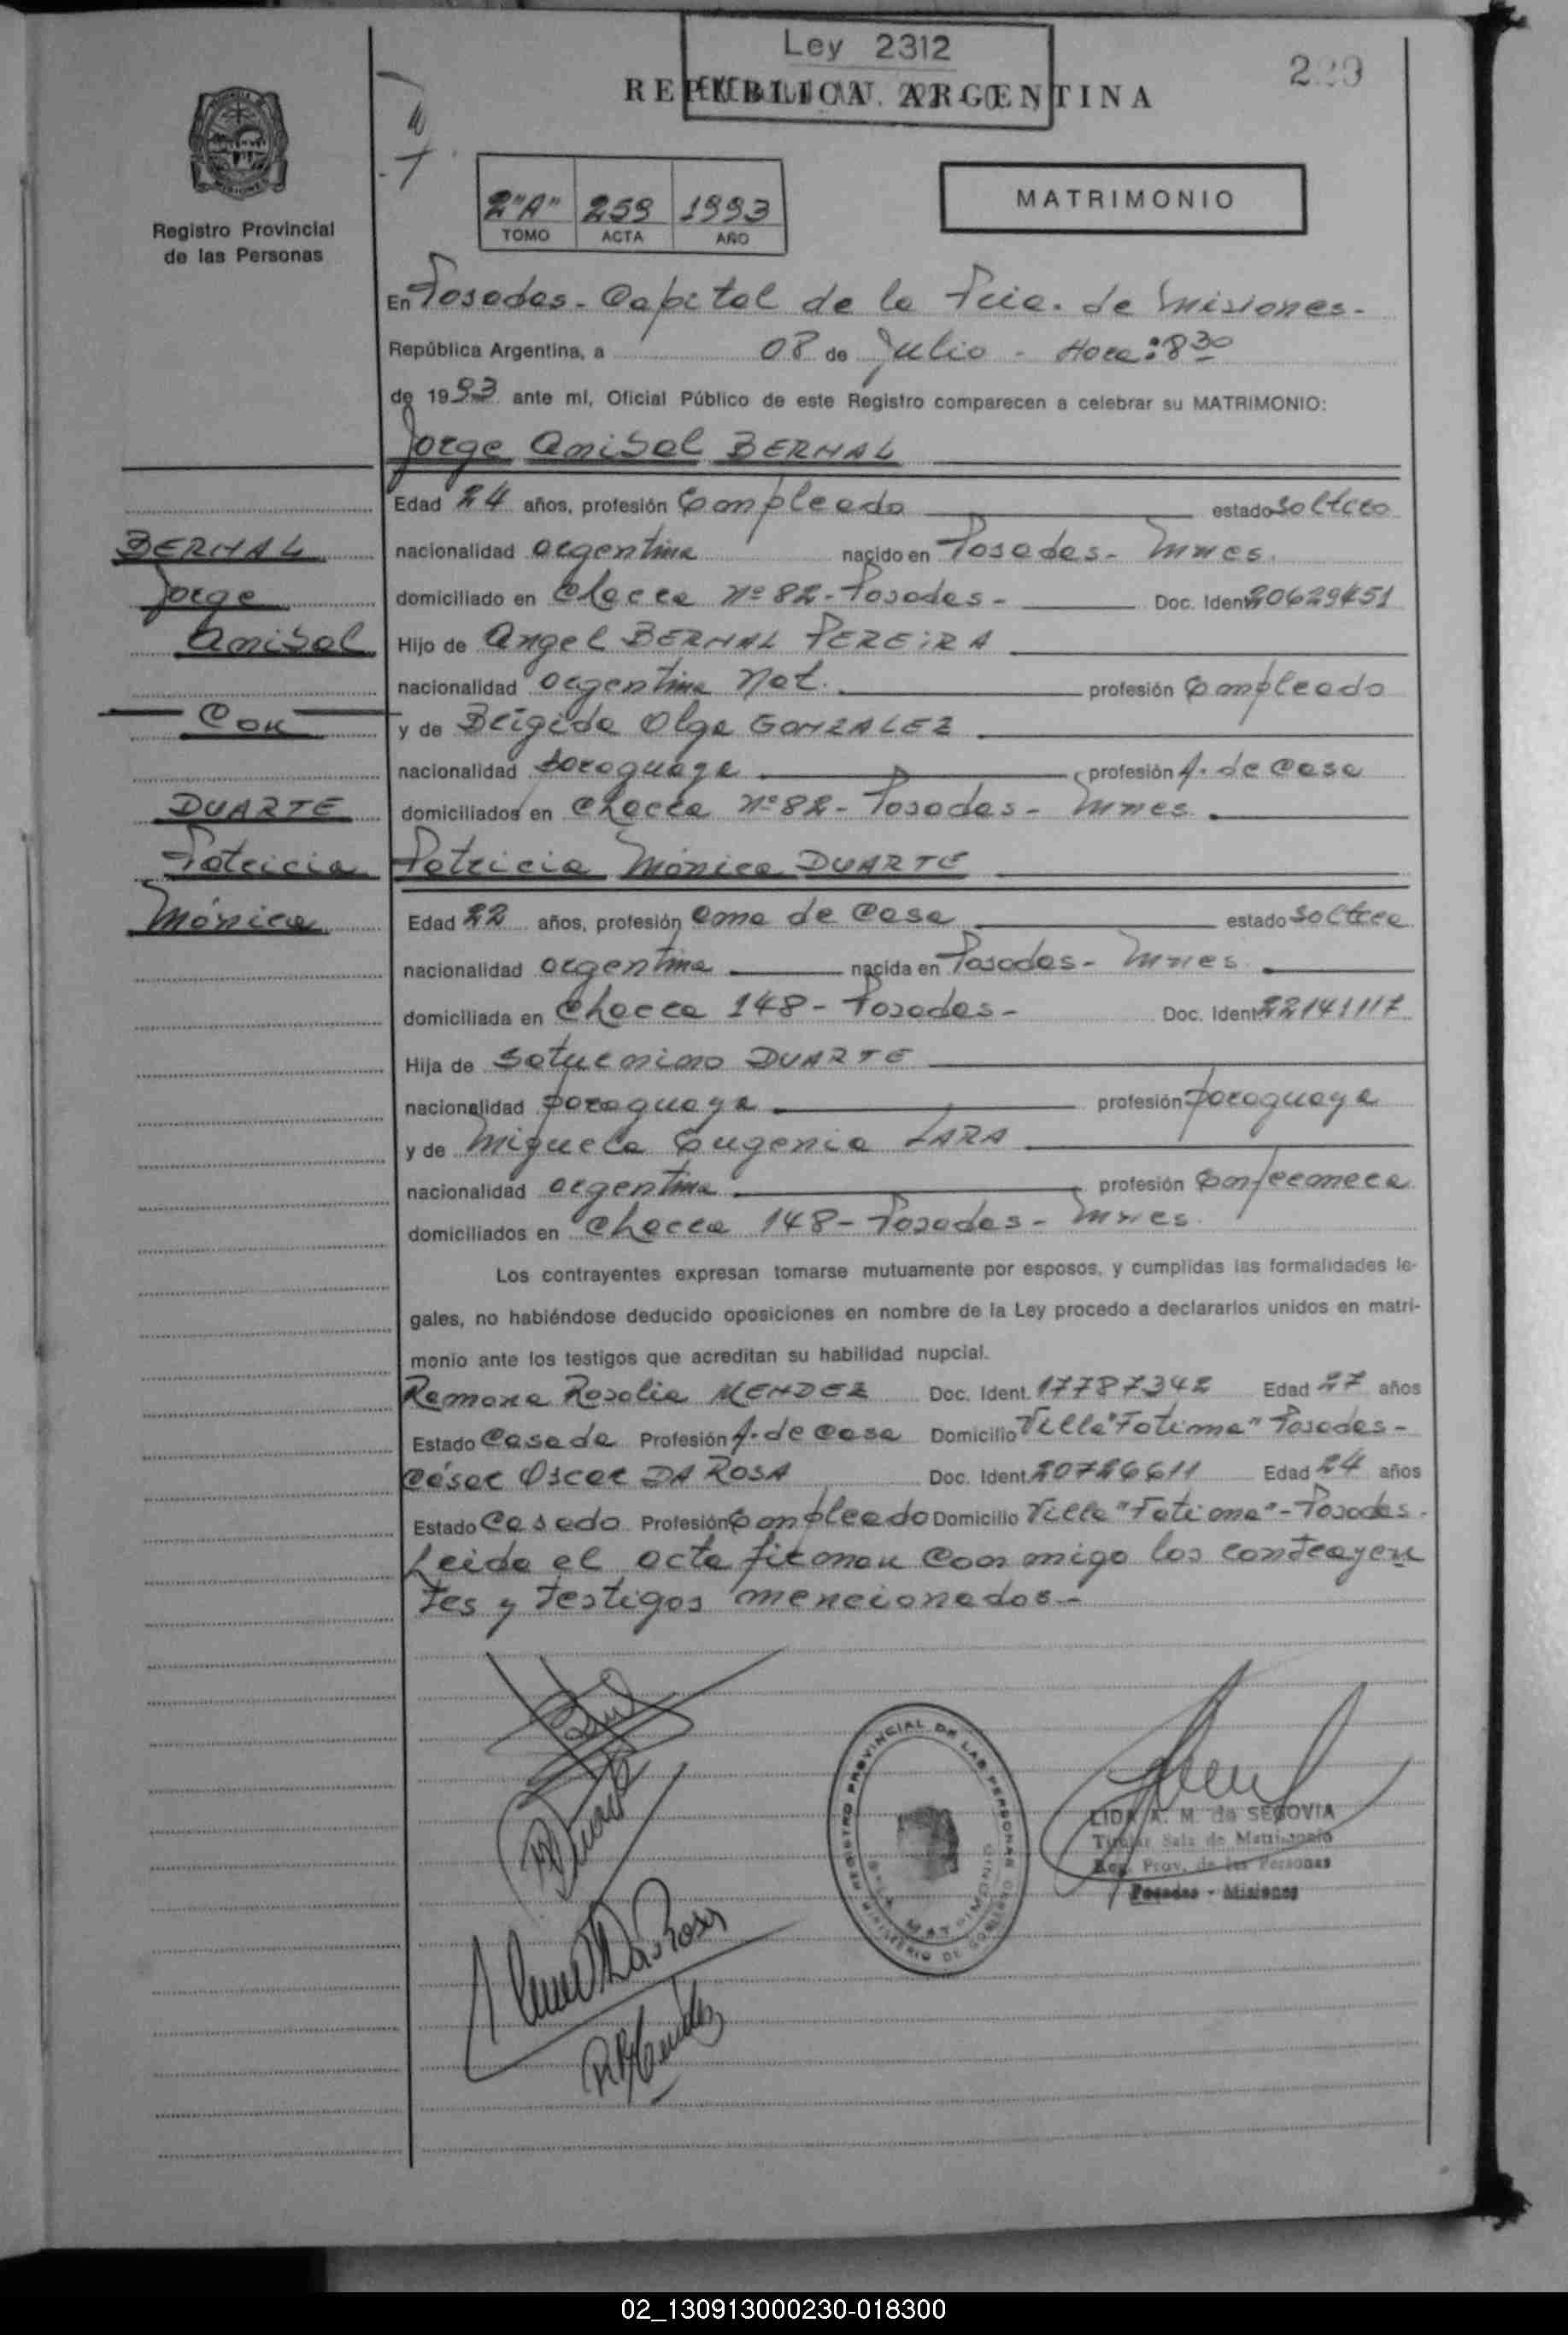 Ley 2312
REPUBLICA ARGENTINA
Registro Provincial
de las Personas
2"A" 259 1993
TOMO ACTA AÑO
MATRIMONIO
En Posadas - Capital de la Pcia. de Misiones -
República Argentina, a 08 de Julio - Hora: 8 30
de 1993 ante mi, Oficial Público de este Registro comparecen a celebrar su MATRIMONIO:
Jorge Anibal BERNAL
Edad 24 años, profesión Empleado estado Soltero
BERNAL
nacionalidad argentina nacido en Posadas - Mnes.
Jorge
domiciliado en Charra Nº 82 - Posadas - Doc. Ident. 20629451
Anibal
Hijo de Angel BERNAL PEREIRA
nacionalidad argentina Nat. profesión Empleado
Con
y de Brígida Olga GONZALEZ
nacionalidad paraguaya profesión A. de Casa
DUARTE
domiciliados en Chacra Nº 82 - Posadas - Mnes.
Patricia
Patricia Mónica DUARTE
Mónica
Edad 22 años, profesión ama de casa estado Soltera
nacionalidad argentina nacida en Posadas - Mnes
domiciliada en Chacra 148 - Posadas - Doc. Ident. 22141117
Hija de Saturnino DUARTE
nacionalidad paraguaya profesión paraguaya
y de Miguela Eugenia LARA
nacionalidad argentina profesión Enfermera
domiciliados en Chacra 148 - Posadas - Mnes.
Los contrayentes expresan tomarse mutuamente por esposos, y cumplidas las formalidades le-
gales, no habiéndose deducido oposiciones en nombre de la Ley procedo a declararlos unidos en matri-
monio ante los testigos que acreditan su habilidad nupcial.
Ramona Rosalia MENDEZ Doc. Ident. 17787342 Edad 27 años
Estado Casada Profesión A. de Casa Domicilio Villa "Fatima" Posadas -
César Oscar DA ROSA Doc. Ident. 20726611 Edad 24 años
Estado Casado Profesión Empleado Domicilio Villa "Fatima" - Posadas -
Leida el acta firman con migo los contrayen
tes y testigos mencionados -
REGISTRO PROVINCIAL DE LAS PERSONAS
SALA MATRIMONIO
MINISTERIO DE GOBIERNO
LIDA A. M. de SEGOVIA
Titular Sala de Matrimonio
Reg. Prov. de las Personas
Posadas - Misiones
Duarte
Da Rosa
R R Mendez
02_130913000230-018300